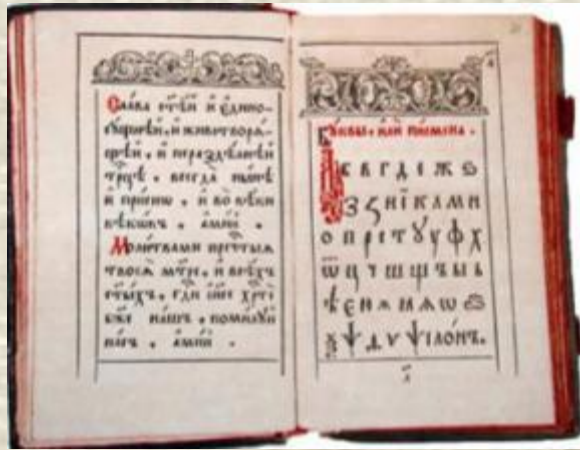 Сла́ва ст҃ѣ́й и҆ є҆дино-
сꙋ́щнѣй, и҆ животворѧ́-
щѣй, и҆ нераздѣ́льнѣй
трⷪ҇цѣ, всегда̀ ны́нѣ
и҆ при́снѡ, и҆ во вѣ́ки
вѣкѡ́въ, а҆ми́нь.
Моли́твами пречⷭ҇тыѧ
твоеѧ̀ мт҃ре, и҆ всѣ́хъ
ст҃ы́хъ, гдⷭ҇и і҆и҃се хрⷭ҇тѐ
бж҃е на́шъ, поми́лꙋй
на́съ, а҆ми́нь.
Бꙋ́квы, и҆лѝ писмена̀.
А Б В Г Д Е Ж Ѕ
З И І К Л М Н
О П Р С Т Ꙋ У Ф Х
Ѿ Ц Ч Ш Щ Ъ Ы Ь
Ѣ Є Ю Ѧ Ѡ
Ѱ Ѵ ѱило́нъ.